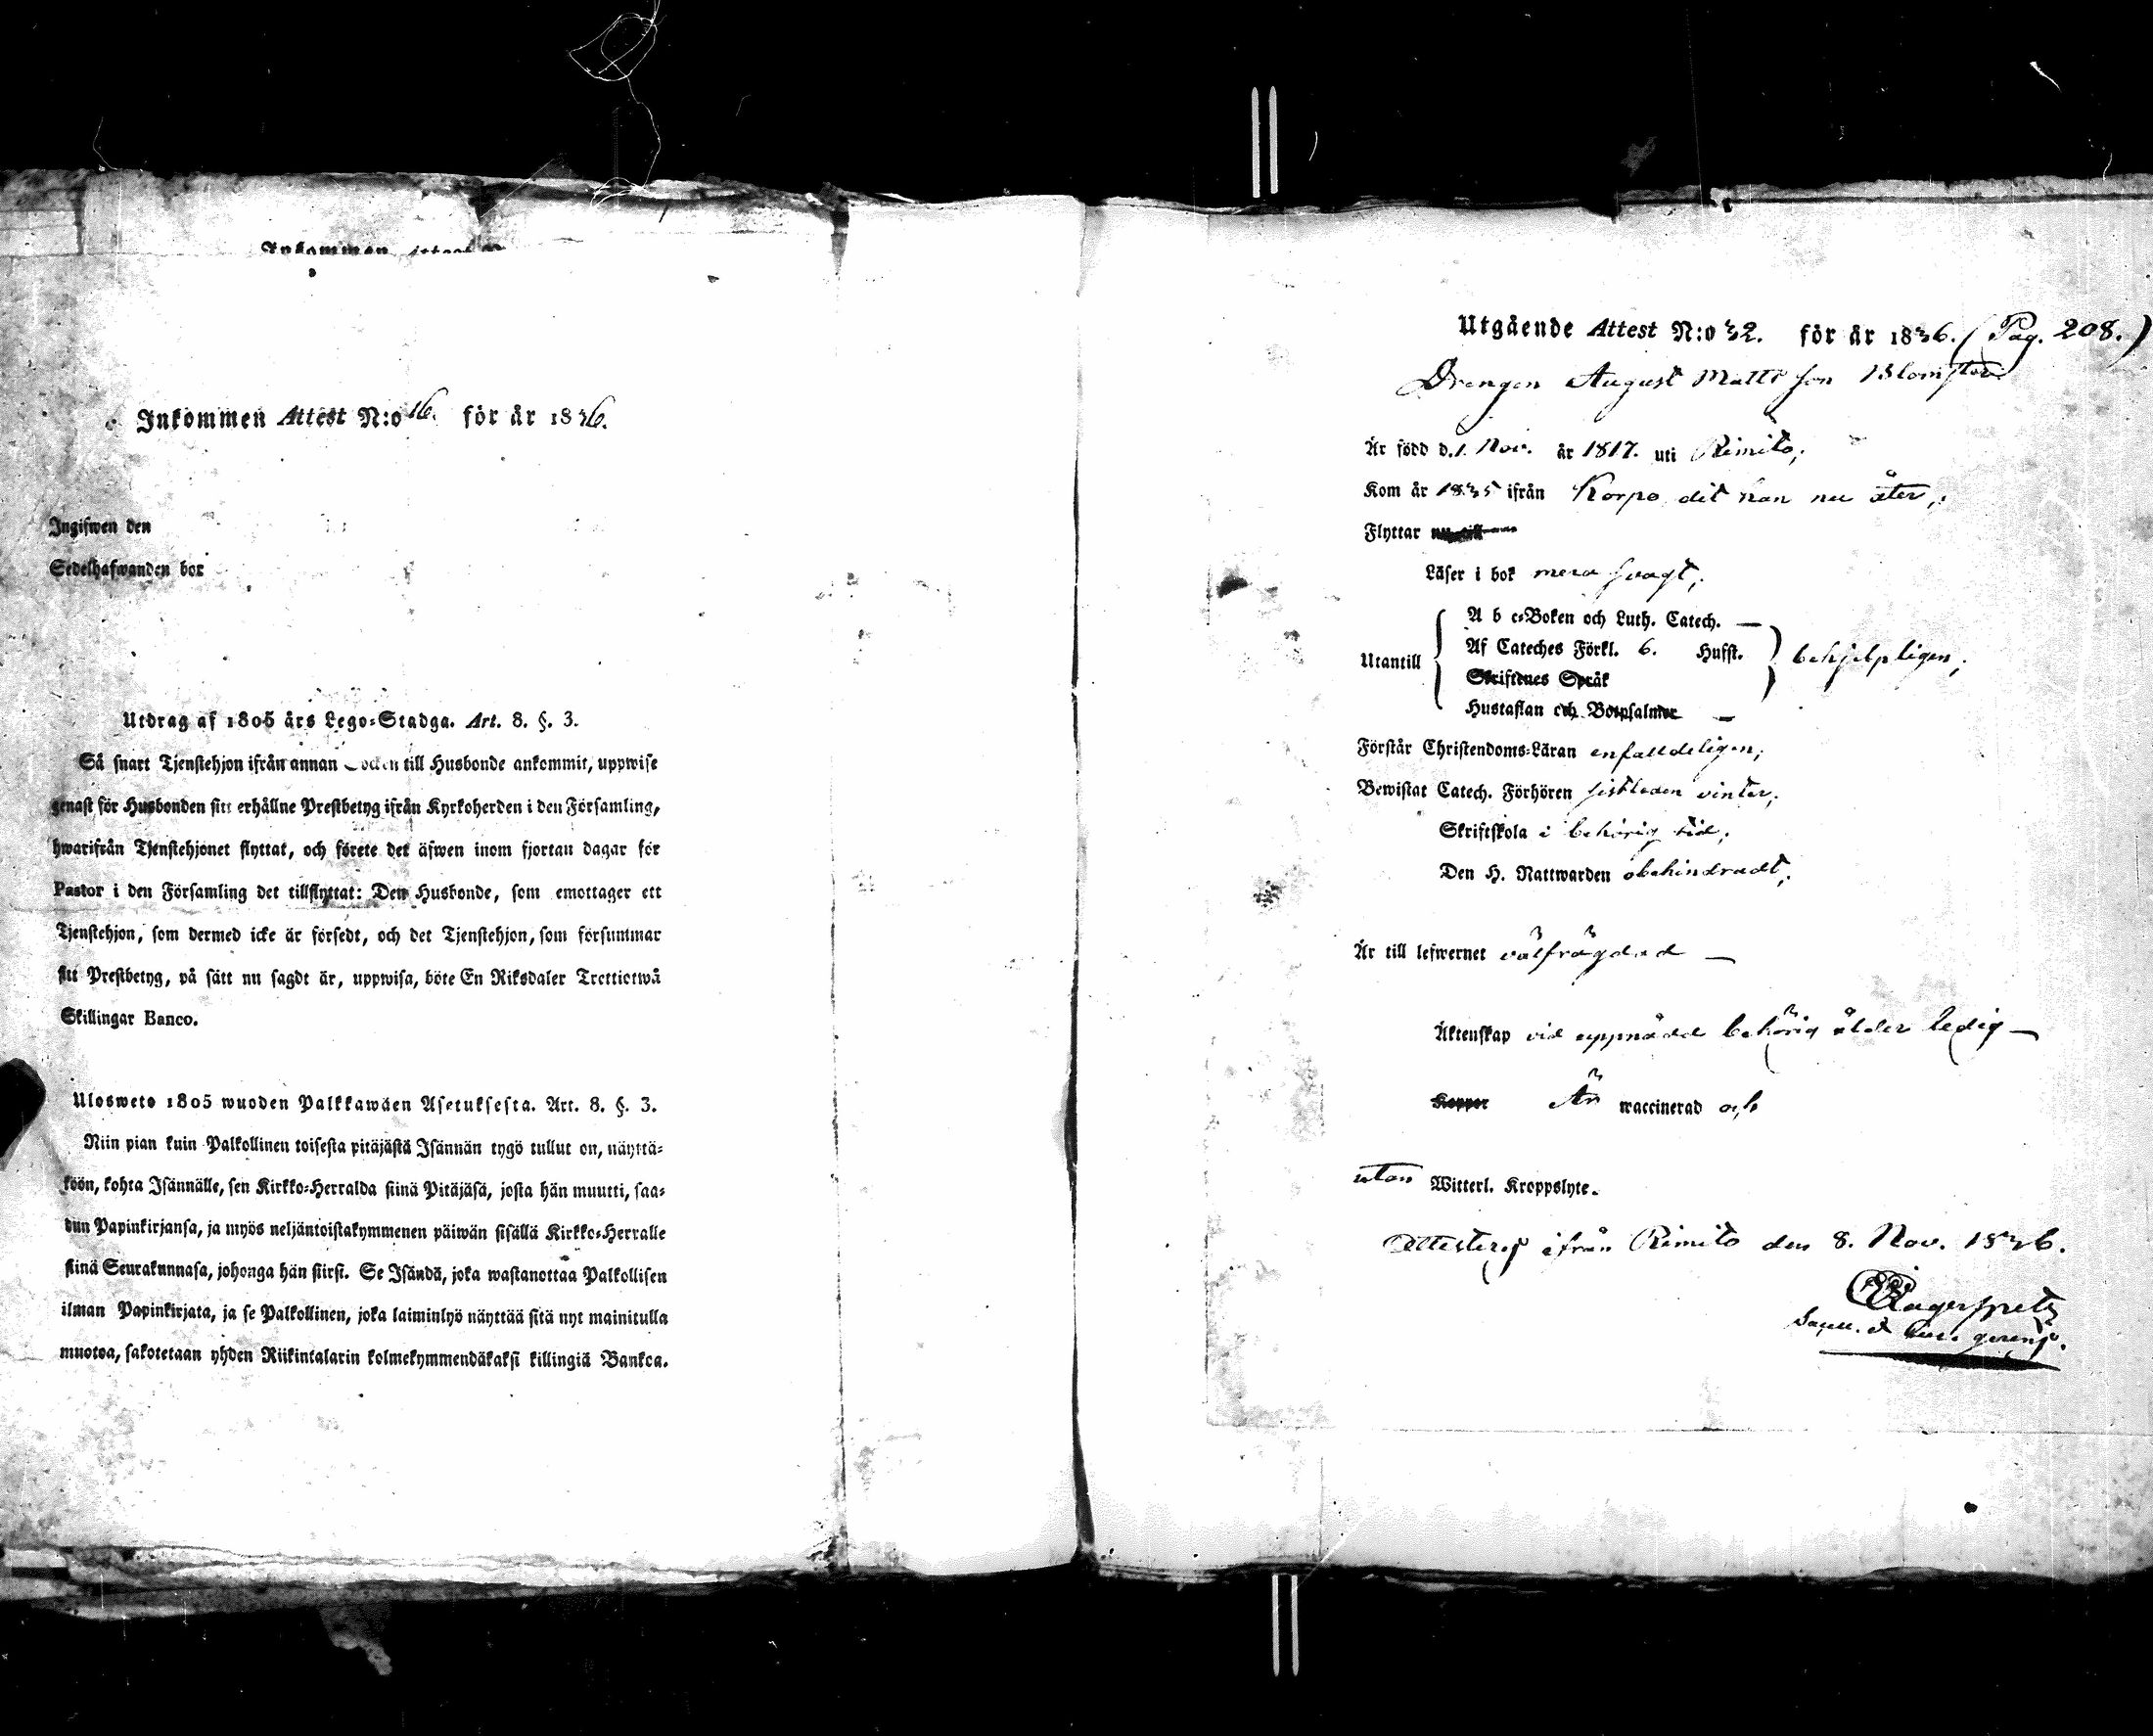 Inkommen Attest N:o 16. för år 1836.
Ingifwen den
Sedelhafwanden bor
Utdrag af 1805 års Lego-Stadga. Art. 8. §. 3.
Så snart Tjenstehjon ifrån annan Socken till Husbonde ankommit, uppwise
genast för Husbonden sitt erhållne Prestbetyg ifrån Kyrkoherden i den Församling,
hwarifrån Tjenstehjonet flyttat, och förete det äfwen inom fjortan dagar för
Pastor i den Församling det tillflyttat: Den Husbonde, som emottager ett
Tjenstehjon, som dermed icke är försedt, och det Tjenstehjon, som försummar
sitt Prestbetyg, på sätt nu sagdt är, uppwisa, böte En Riksdaler Trettiotwå
Skillingar Banco.
Ulosweto 1805 wuoden Palkkawäen Asetuksesta. Art. 8. §. 3.
Niin pian kuin Palkollinen toisesta pitäjästä Isännän tygö tullut on, näyttä-
köön, kohta Isännälle, sen Kirkko-Herralda siinä Pitäjäsä, josta hän muutti, saa-
dun Papinkirjansa, ja myös neljäntoistakymmenen päiwän sisällä Kirkko-Herralle
siinä Seurakunnasa, johonga hän siirsi. Se Isändä, joka wastanottaa Palkollisen
ilman Papinkirjata, ja se Palkollinen, joka laiminlyö näyttää sitä nyt mainitulla
muotoa, sakotetaan yhden Riikintalarin kolmekymmendäkaksi killingiä Bankoa.
Utgående Attest N:o 32. för år 1836. (Pag. 208.)
Drengen August Matts son Blomster
Är född d. 1. Nov. år 1817. uti Rimito,
Kom år 1835 ifrån Korpo, dit han nu åter,
Flyttar
Läser i bok mera svagt,
Utantill
A b c-Boken och Luth. Catech. —
Af Cateches Förkl. 6. Hufst.
behjelpligen,
Skriftenes Språk
Hustaflan och Botpsalmer —
Förstår Christendoms-Läran enfaldeligen,
Bewistat Catech. Förhören sistleden vinter,
Skriftskola i behörig tid,
Den H. Nattwarden obehindradt,
Är till lefwernet välfrägdad —
Äktenskap vid uppnådd behörig ålder ledig —
Koppor Är waccinerad och
utan Witterl. Kroppslyte.
Attesteras ifrån Rimito den 8. Nov. 1836.